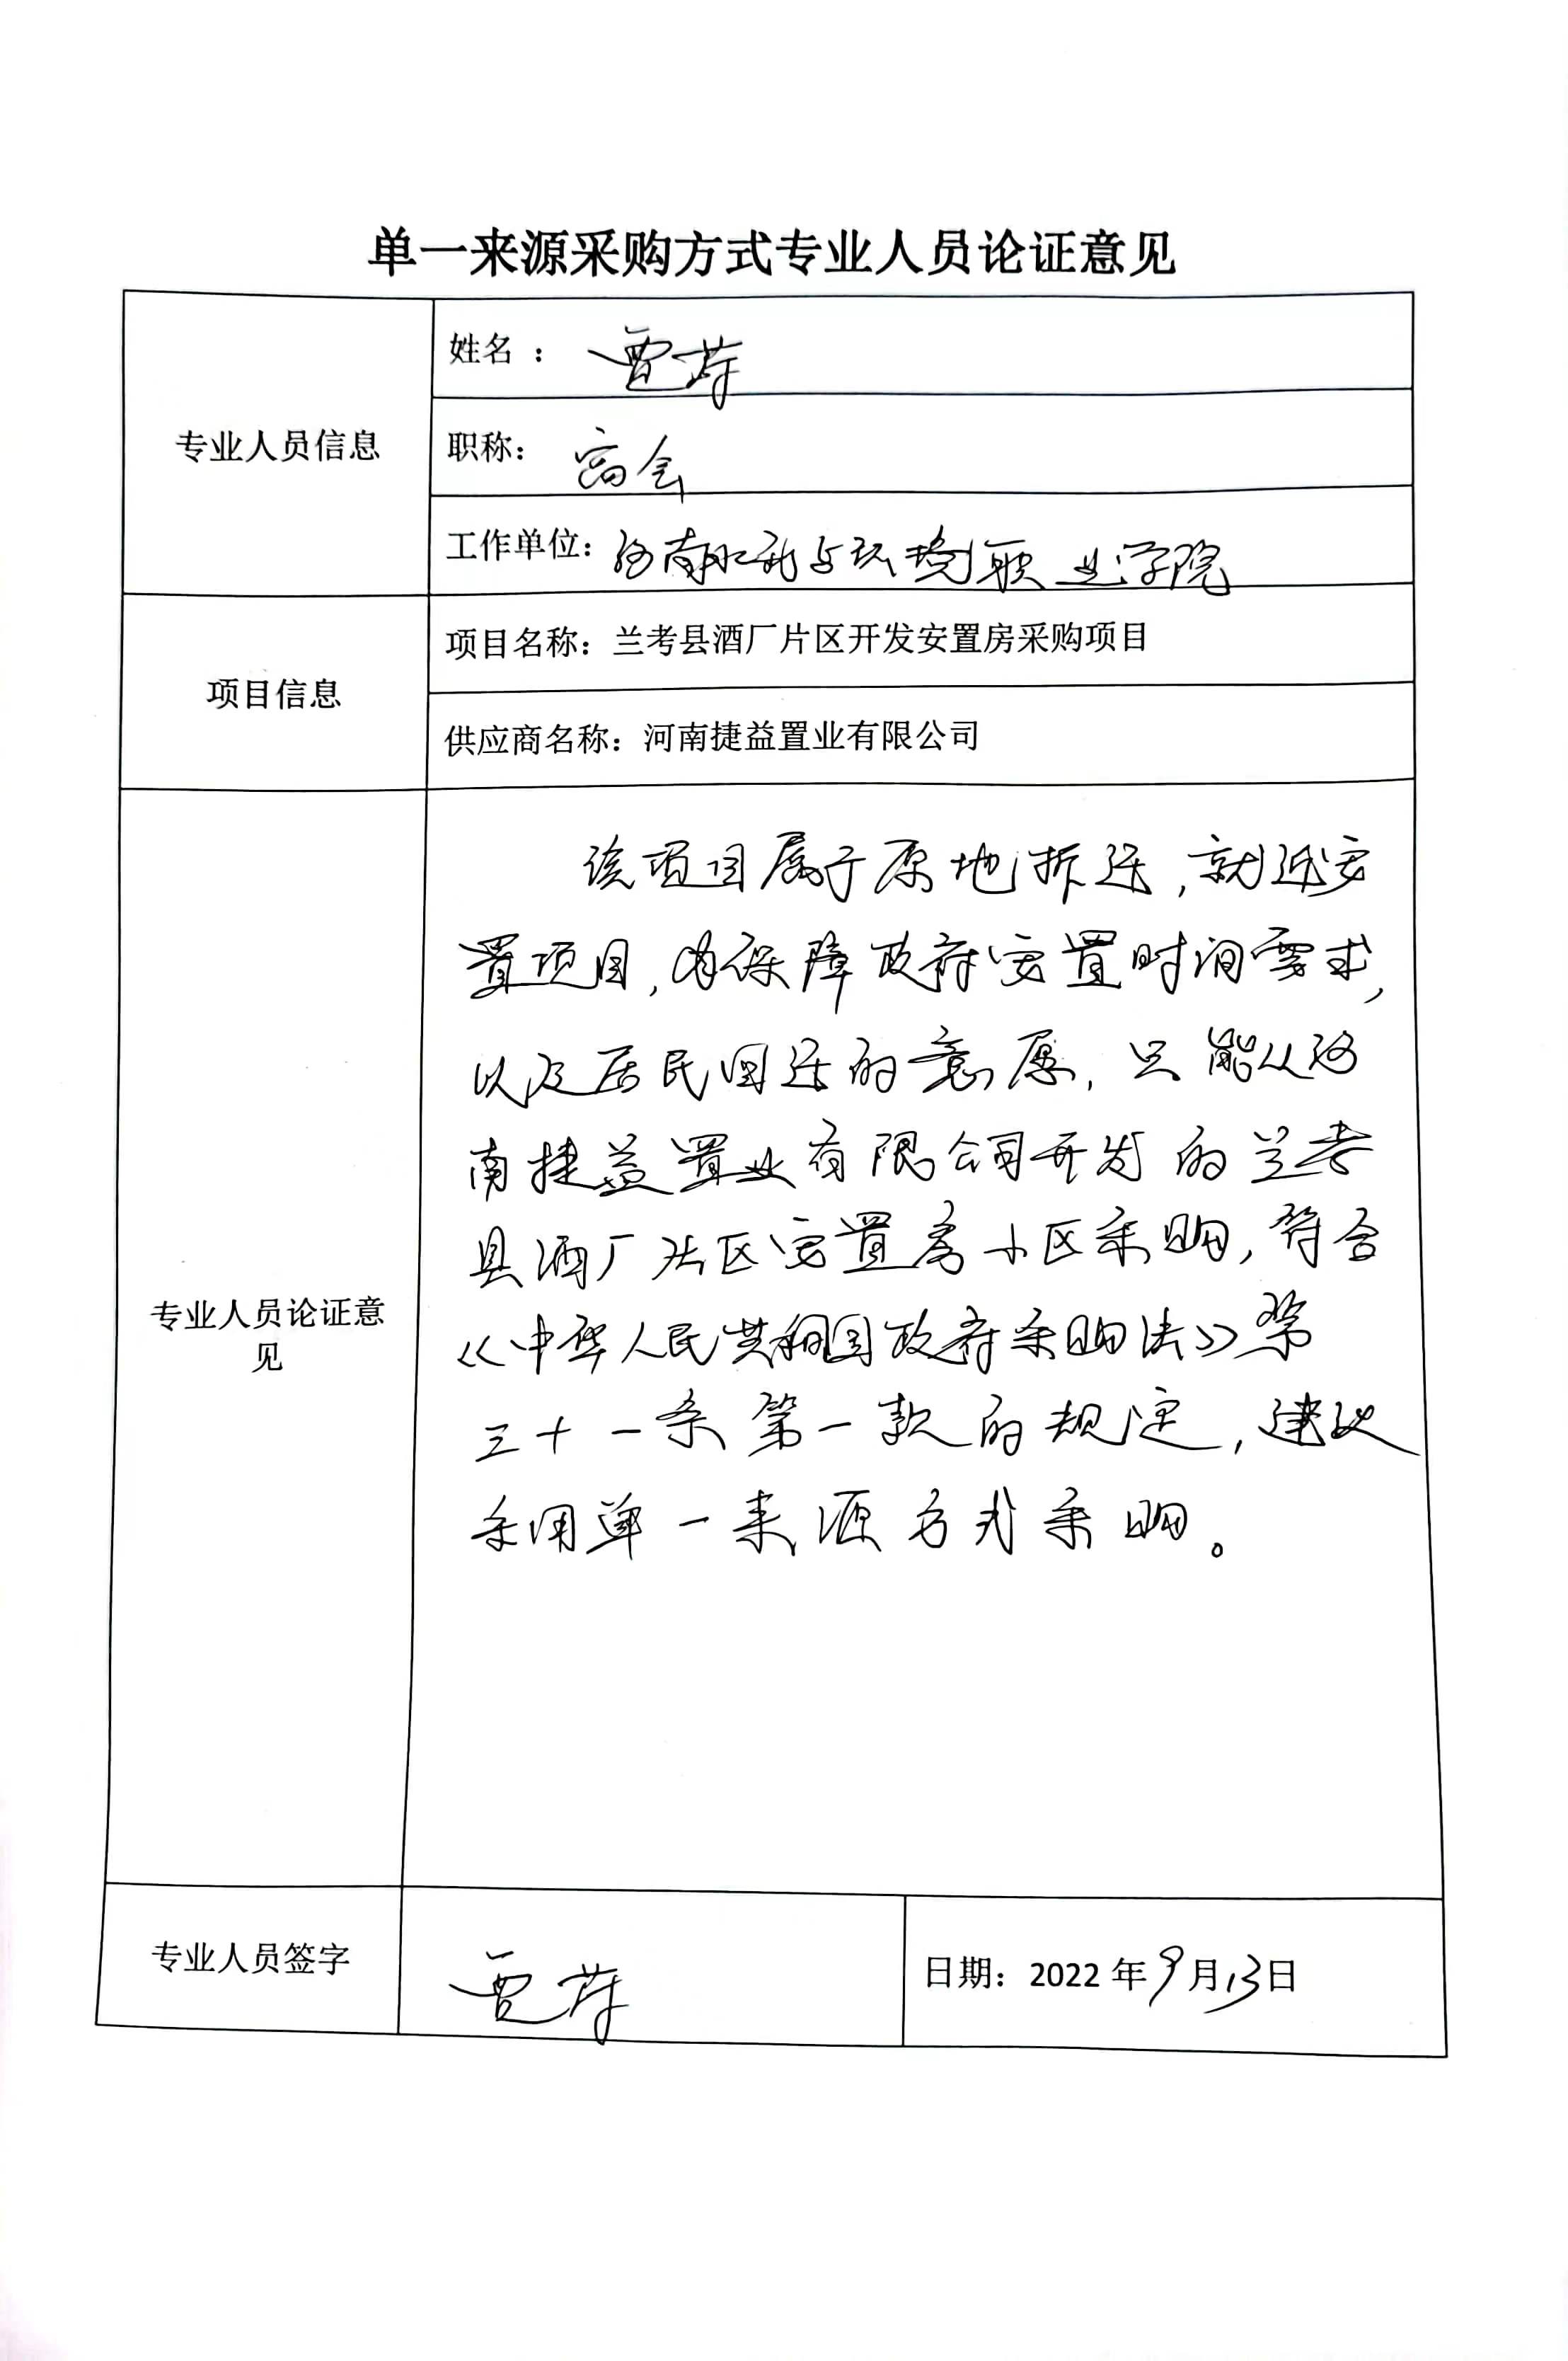 单一来源采购方式专业人员论证意见
专业人员信息
姓名 : 贾
职称: 高会
工作单位: 河南水利与环境职业学院
项目信息
项目名称: 兰考县酒厂片区开发安置房采购项目
供应商名称: 河南捷益置业有限公司
专业人员论证意
见
该项目属于原地拆迁,就近安
置项目,为保障政府安置时间要求,
以及居民回迁的意愿,只能从河
南捷益置业有限公司开发的兰考
县酒厂片区安置房小区采购,符合
《中华人民共和国政府采购法》第
三十一条第一款的规定,建议
采用单一来源方式采购。
专业人员签字
贾
日期: 2022 年 9 月 13 日